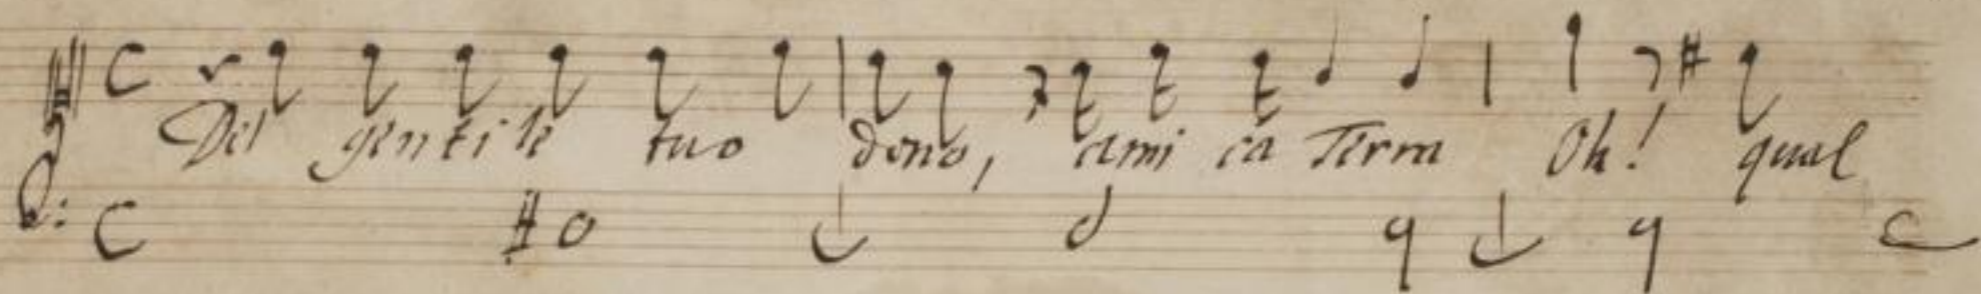 Del gentile tuo dono, ami ca Terra Oh! qual